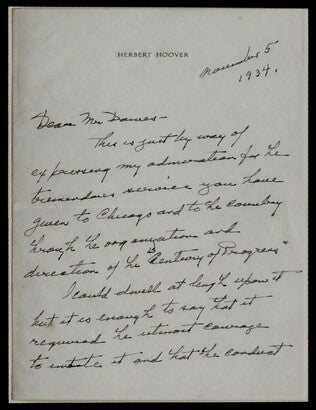 HERBERT HOOVER
November 5
1934.
Dear Mr Dawes -
This is just by way of
expressing my admiration for the
tremendous service you have
given to Chicago and to the country
through the organization and
direction of the "Century of Progress"
I could dwell at length upon it
but it is enough to say that it
required the utmost courage
to initiate it and that the conduct